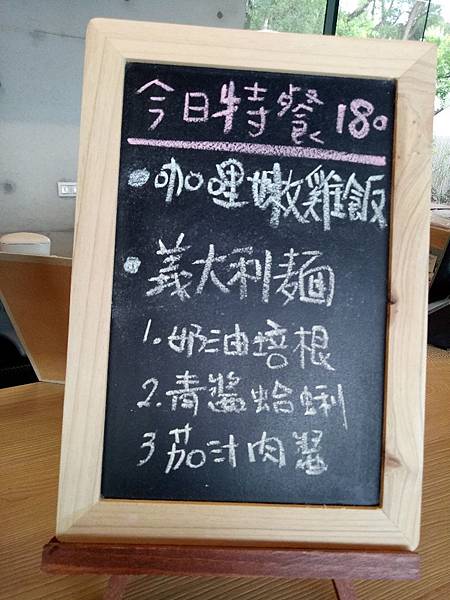 今日特餐 180
•咖哩嫩雞飯
•義大利麵
1.奶油培根
2.青醬蛤蜊
3茄汁肉醬